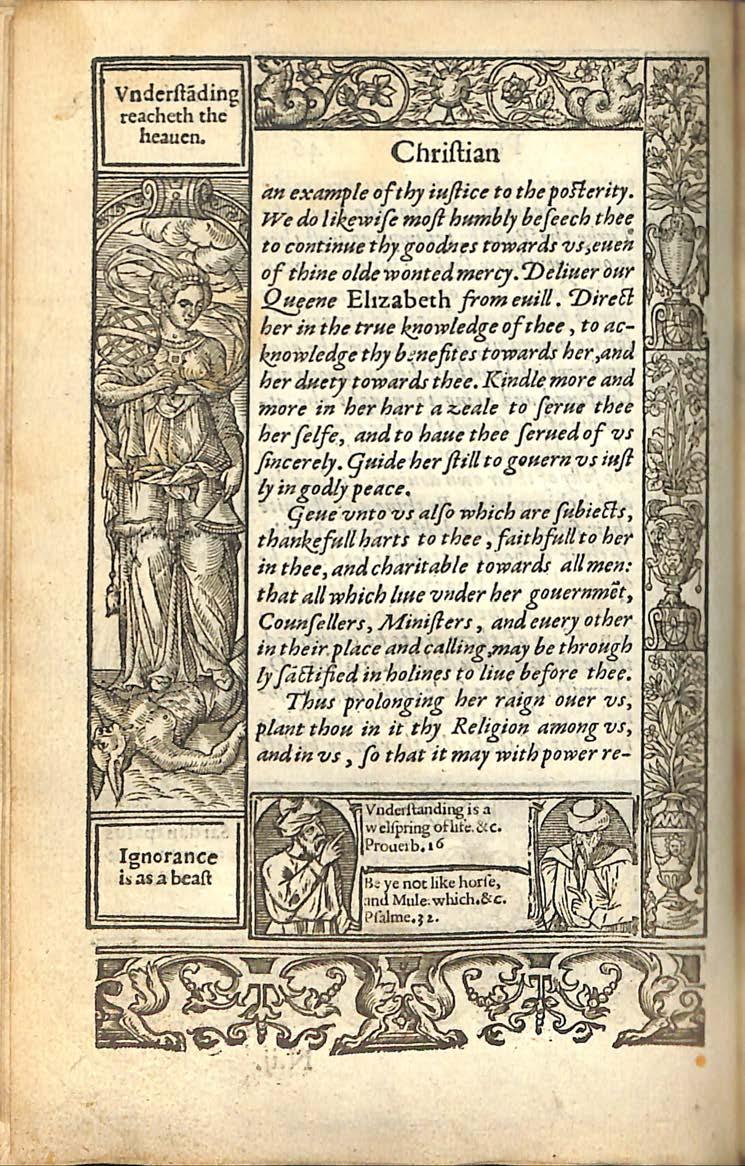 Vnderſtãding
reacheth the
heauen.
Chriſtian
an example of thy iuſtice to the poſterity.
We do likewiſe moſt humbly beſeech thee
to continue thy goodnes towards vs, euen
of thine olde wonted mercy. Deliuer our
Queene Elizabeth from euill. Direct
her in the true knowledge of thee, to ac-
knowledge thy benefites towards her, and
her duety towards thee. Kindle more and
more in her hart a zeale to ſerue thee
her ſelfe, and to haue thee ſerued of vs
ſincerely. Guide her ſtill to gouern vs iuſt
ly in godly peace.
Geue vnto vs alſo which are ſubiects,
thankefull harts to thee, faithfull to her
in thee, and charitable towards all men:
that all which liue vnder her gouernmẽt,
Counſellers, Miniſters, and euery other
in their place and calling, may be through
ly ſãctified in holines to liue before thee.
Thus prolonging her raign ouer vs,
plant thou in it thy Religion among vs,
and in vs, ſo that it may with power re-
Ignorance
is as a beaſt
Vnderſtanding is a
welſpring of life. &c.
Prouerb. 16
Be ye not like horſe,
and Mule. which. &c.
Pſalme. 32.